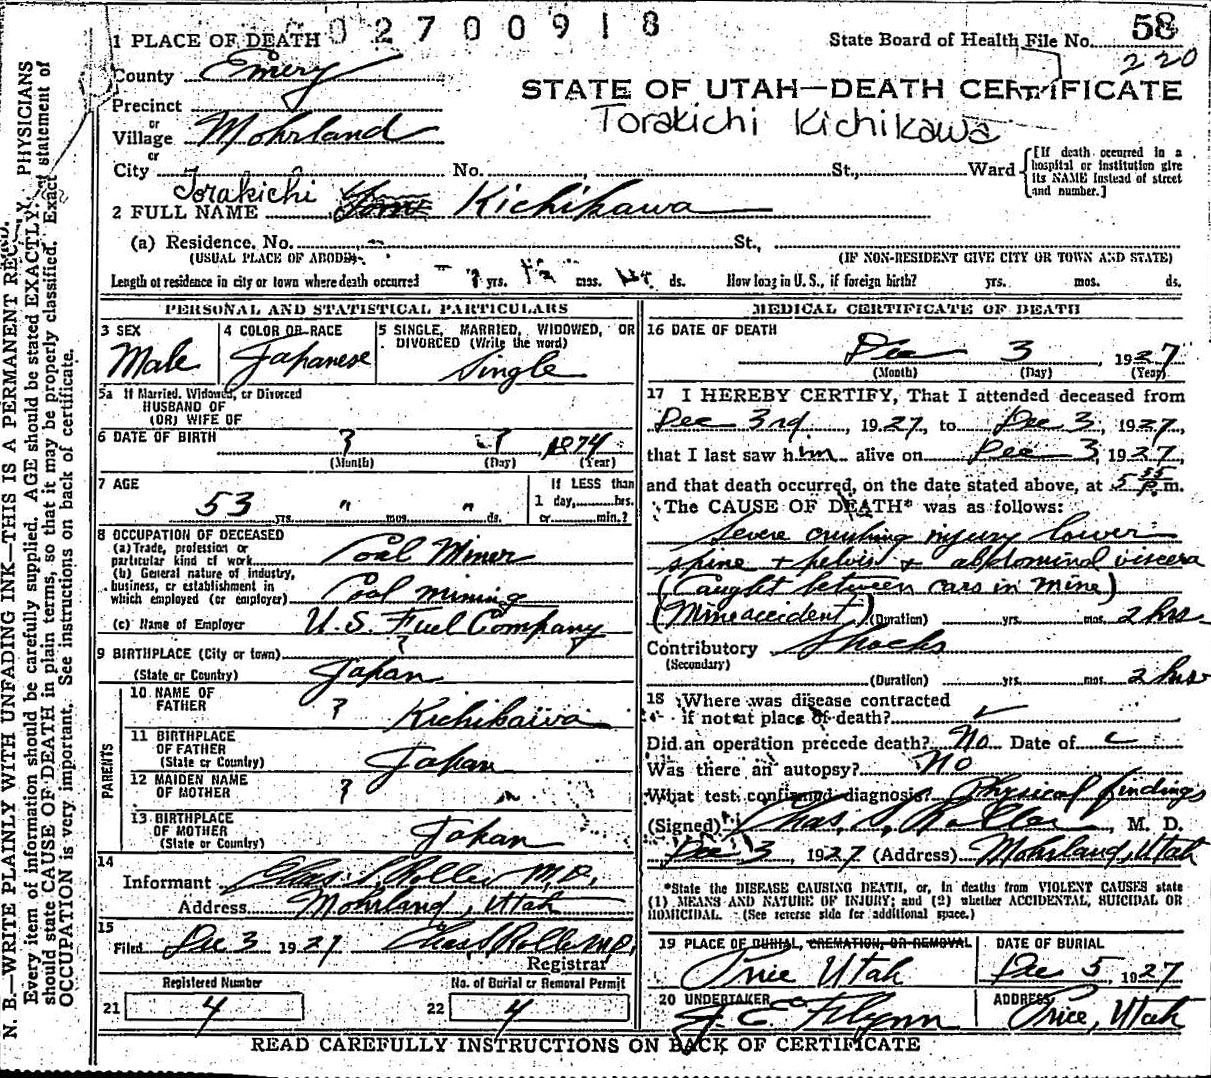 02700918
1 PLACE OF DEATH
State Board of Health File No. 58
220
County Emery
STATE OF UTAH—DEATH CERTIFICATE
Precinct
or
Village Mohrland
Torakichi Kichikawa
or
City No. St., Ward
[If death occurred in a hospital or institution give its NAME instead of street and number.]
Torakichi
2 FULL NAME Kichikawa
(a) Residence, No. St.,
(USUAL PLACE OF ABODE) (IF NON-RESIDENT GIVE CITY OR TOWN AND STATE)
Length of residence in city or town where death occurred yrs. mos. ds. How long in U. S., if foreign birth? yrs. mos. ds.
PERSONAL AND STATISTICAL PARTICULARS
3 SEX
Male
4 COLOR OR RACE
Japanese
5 SINGLE, MARRIED, WIDOWED, OR DIVORCED (Write the word)
Single
5a If Married, Widowed, or Divorced
HUSBAND OF
(OR) WIFE OF
6 DATE OF BIRTH ? ? 1874
(Month) (Day) (Year)
7 AGE
53 yrs. " mos. " ds.
If LESS than
1 day, hrs.
or min.?
8 OCCUPATION OF DECEASED
(a) Trade, profession or
particular kind of work Coal Miner
(b) General nature of industry,
business, or establishment in
which employed (or employer) Coal mining
(c) Name of Employer U. S. Fuel Company
9 BIRTHPLACE (City or town) ?
(State or Country) Japan
PARENTS
10 NAME OF
FATHER ? Kichikawa
11 BIRTHPLACE
OF FATHER
(State or Country) Japan
12 MAIDEN NAME
OF MOTHER ?
13 BIRTHPLACE
OF MOTHER
(State or Country) Japan
14
Informant Chas. S. Roller M.D.
Address Mohrland, Utah
15
Filed Dec 3 1927 Chas S Roller M.D.
Registrar
Registered Number
21 4
No. of Burial or Removal Permit
22 4
MEDICAL CERTIFICATE OF DEATH
16 DATE OF DEATH
Dec 3, 1927
(Month) (Day) (Year)
17 I HEREBY CERTIFY, That I attended deceased from
Dec 3rd, 1927, to Dec 3, 1927,
that I last saw him alive on Dec 3, 1927,
and that death occurred, on the date stated above, at 5 55 P. m.
The CAUSE OF DEATH* was as follows:
Severe crushing injury lower
spine + pelvis + abdominal viscera
(Caught between cars in mine)
(Mine accident) (Duration) yrs. mos. 2 hrs
Contributory Shock
(Secondary)
(Duration) yrs. mos. 2 hrs
18 Where was disease contracted
if not at place of death?
Did an operation precede death? No Date of
Was there an autopsy? No
What test confirmed diagnosis? Physical findings
(Signed) Chas. S. Roller, M. D.
Dec 3, 1927 (Address) Mohrland, Utah
*State the DISEASE CAUSING DEATH, or, in deaths from VIOLENT CAUSES state
(1) MEANS AND NATURE OF INJURY; and (2) whether ACCIDENTAL, SUICIDAL OR
HOMICIDAL. (See reverse side for additional space.)
19 PLACE OF BURIAL, CREMATION, OR REMOVAL
Price Utah
DATE OF BURIAL
Dec 5, 1927
20 UNDERTAKER
J. E. Flynn
ADDRESS
Price, Utah
READ CAREFULLY INSTRUCTIONS ON BACK OF CERTIFICATE
N. B.—WRITE PLAINLY WITH UNFADING INK—THIS IS A PERMANENT RECORD.
Every item of information should be carefully supplied. AGE should be stated EXACTLY. PHYSICIANS
should state CAUSE OF DEATH in plain terms, so that it may be properly classified. Exact statement of
OCCUPATION is very important. See instructions on back of certificate.